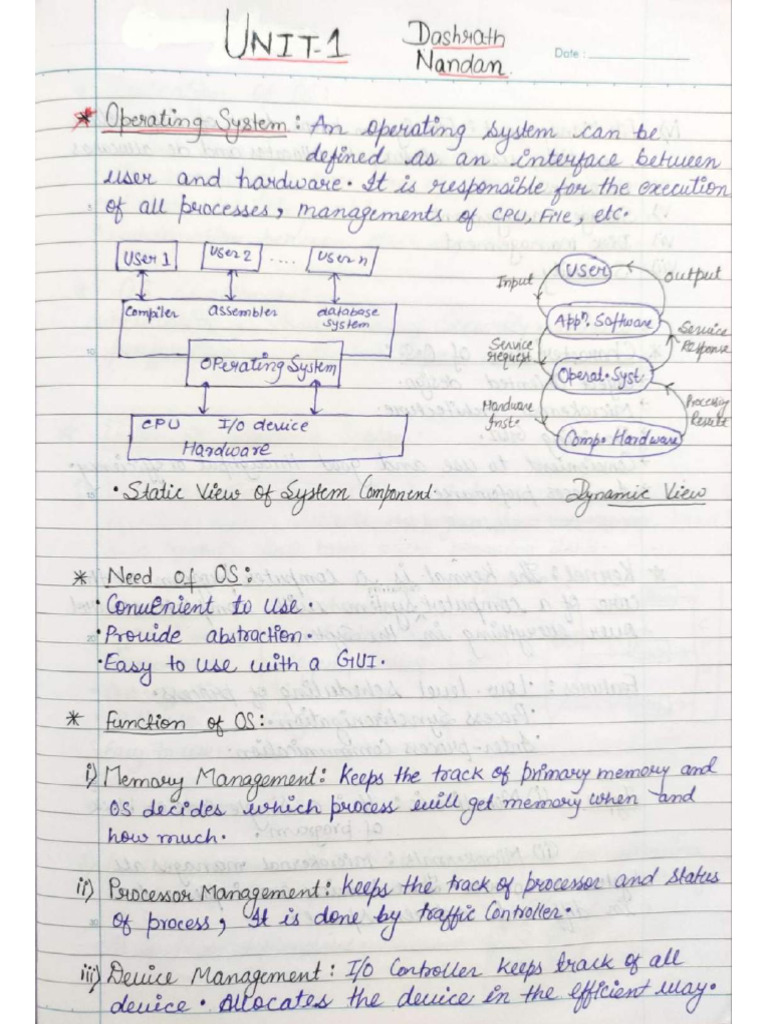 UNIT-1
Dashrath
Nandan
Date :
* Operating System: An operating system can be
defined as an interface between
user and hardware. It is responsible for the execution
of all processes, managements of CPU, File, etc.
User 1
User 2
....
User n
Compiler
assembler
database
system
Operating System
CPU I/O device
Hardware
• Static View of System Component.
User
Input
output
Appn. Software
Service
request
Service
Response
Operat. Syst
Hardware
Inst.
Processing
Results
Comp. Hardware
Dynamic View
* Need of OS:
• Convenient to use.
• Provide abstraction.
• Easy to use with a GUI.
* Function of OS:
i) Memory Management: Keeps the track of primary memory and
OS decides which process will get memory when and
how much.
ii) Processor Management: Keeps the track of processor and status
of process; It is done by traffic Controller.
iii) Device Management: I/O Controller keeps track of all
device. Allocates the device in the efficient way.